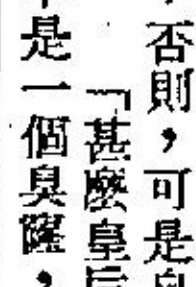 否則，可是
「甚麼皇后
是一個臭薩，